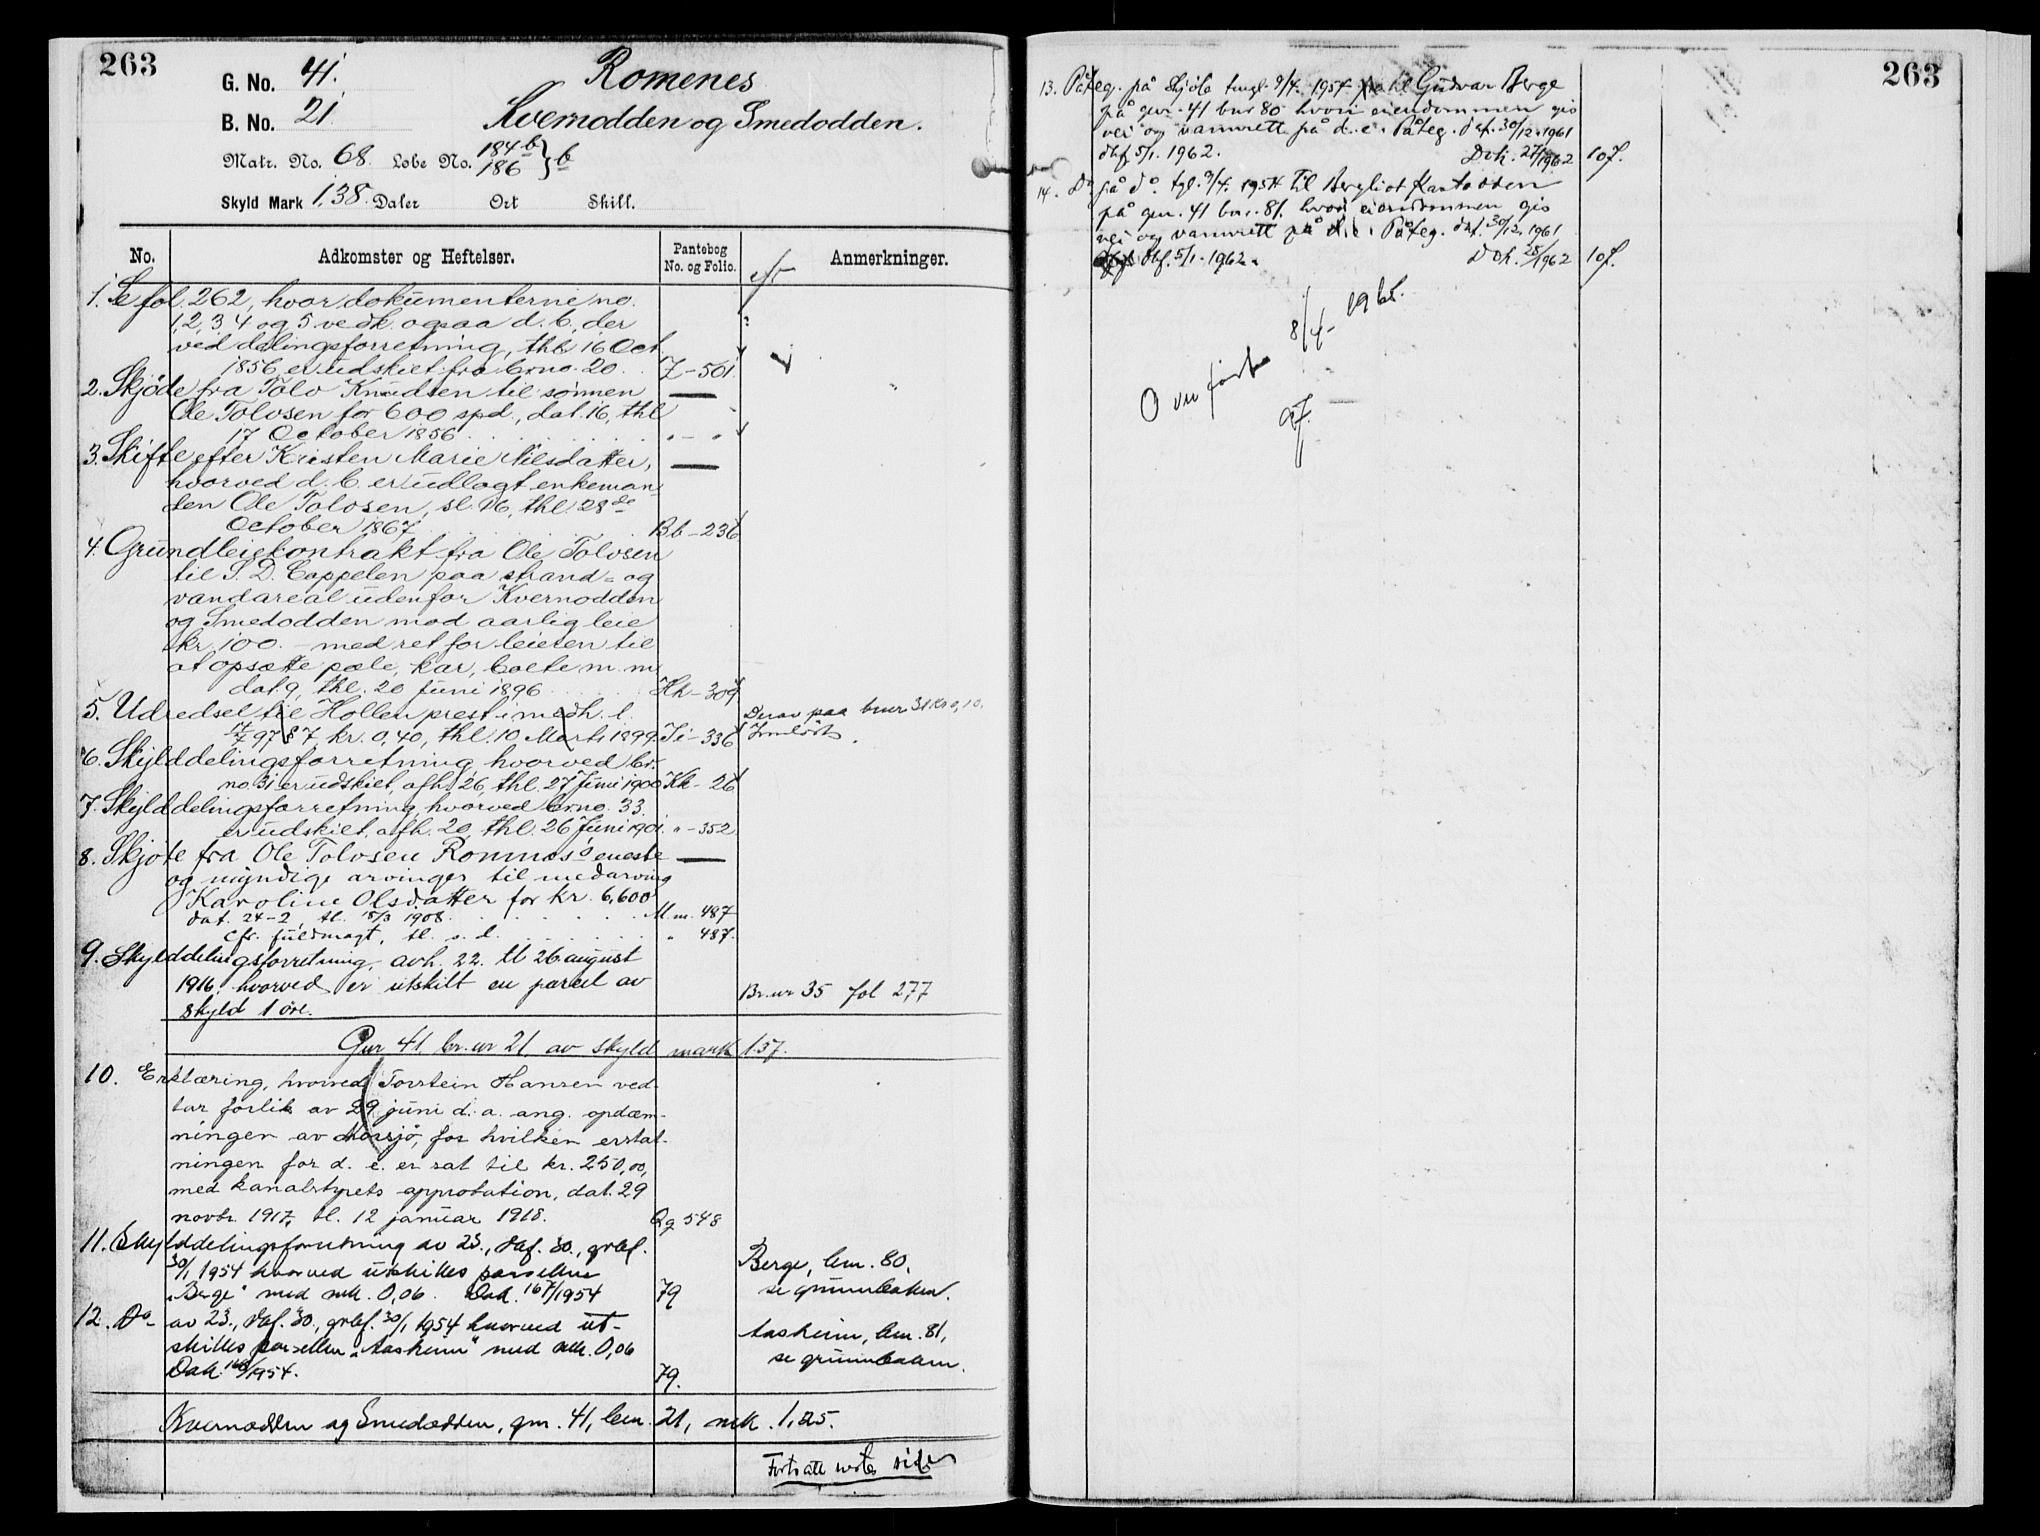 263
G. No. 41.
Romenes
B. No. 21
Kvernodden og Smedodden.
Matr. No. 68. Løbe No. 184 b 186 } b
Skyld Mark 1,38. Daler Ort Skill.
No. Adkomster og Heftelser. Pantebog No. og Folio. Anmerkninger.
1. Se fol. 262, hvor dokumenterne no.
1, 2, 3 4 og 5 vedk. ogsaa d. b., der
ved delingsforretning, thl. 16 Oct.
1856, er udskilt fra brno. 20. Z – 501.
2. Skjøde fra Tolv Knudsen til sønnen
Ole Tolvsen for 600 spd., dat. 16, thl.
17 October 1856 " – "
3. Skifte efter Kristen Marie Nilsdatter,
hvorved d. b. er udlagt enkeman-
den Ole Tolvsen, sl. 16, thl. 28de
October 1867 Bb – 236
4. Grundleiekontrakt fra Ole Tolvsen
til S. D. Cappelen paa strand- og
vandareal udenfor Kvernodden
og Smedodden mod aarlig leie
kr. 100. – med ret for leieren til
at opsætte pæle, kar, bolte m. m.
dat. 9, thl. 20 Juni 1896 Hh – 309
5. Udredsel til Hollen prest i medh. l.
97 kr. 0,40, thl. 10 Marts 1899. Ii – 336
Derav paa brnr 31 Kr 0,10.
Innløst.
6. Skylddelingsforretning hvorved br.
no. 31 er udskilt, afh. 26, thl. 27 Juni 1900 Kk – 26
7. Skylddelingsforretning, hvorved brno. 33
er udskilt, afh. 20, thl. 26 Juni 1901. " – 352
8. Skjøte fra Ole Tolvsen Romnes's eneste
og myndige arvinger til medarving
Karoline Olsdatter for kr. 6,600
dat. 24–2, tl. 18/3 1908. M. m. 487
cfr. fuldmagt, tl. s. d. " 487.
9. Skylddelingsforretning, avh. 22. tl 26 august
1916, hvorved er utskilt en parcel av
skyld 1 øre.
Br.nr 35 fol 277
Gnr 41 br. nr 21 av skyld mark 1.37.
10. Erklæring, hvorved Torstein Hansen ved-
tar forlik av 29 juni d. a. ang. opdæm-
ningen av Norsjø, for hvilken erstat-
ningen for d. e. er sat til kr. 250,00,
med kanalstyrets approbation, dat. 29
novbr. 1917, tl. 12 januar 1918. Qq 548
11. Skylddelingsforretning av 23., dbf. 30., grbf.
30/1 1954 hvorved utskilles parsellen
"Berge" med mk. 0,06. Dok. 167/1954 79
Berge, bnr. 80,
se grunnboken.
12. Do. av 23., dbf. 30., grbf. 30/1 1954 hvorved ut-
skilles parsellen "Aasheim" med mk. 0,06
Dok. 168/1954. 79.
Aasheim, bnr. 81,
se grunnboken.
Kvernodden og Smedodden, gnr. 41, bnr. 21, mk. 1,25.
Fortsatt neste side
263
13. Påteg. på skjøte tingl. 9/4. 1954 til Gudvar Berge
på gnr. 41 bnr 80 hvori eiendommen gis
vei og vannrett på d. e. Påteg. dat. 30/12. 1961
dbf 5/1. 1962. Dok. 27/1962 107.
14. Do på do. tgl. 9/4. 1954 til Bergliot Kastodden
på gnr. 41 bnr. 81. hvori eiendommen gis
vei og vannrett på d. e. Påteg. dat. 30/12. 1961
dbf. 5/1. 1962. Dok. 28/1962 107.
Overført 8/4- 1965.